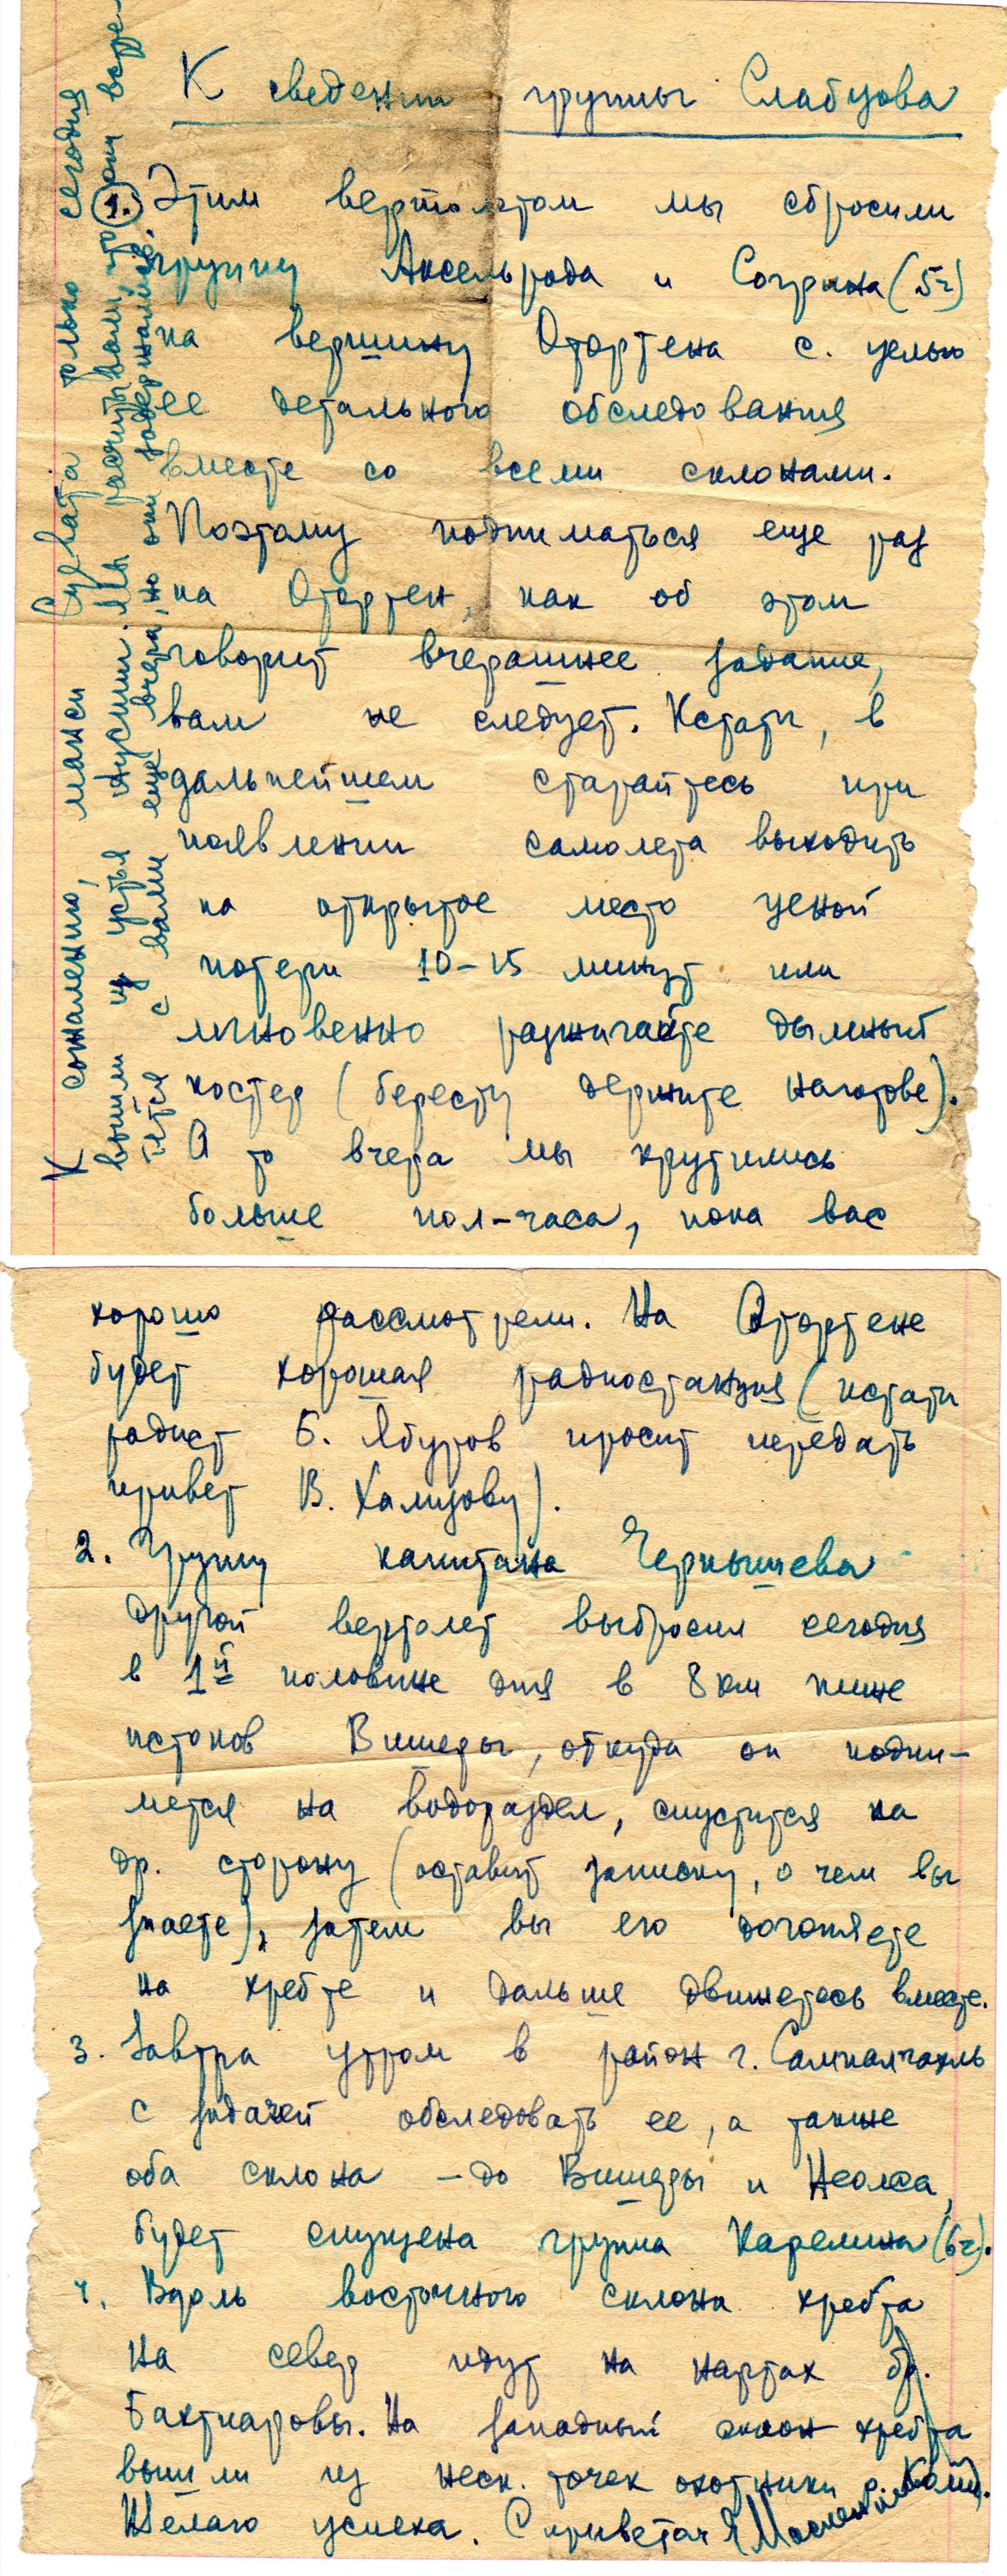 К сведению группы Слабцова
1. Этим вертолетом мы сбросили
группу Аксельрода и Согрина (5ч)
на вершину Отортена с целью
ее детального обследования
вместе со всеми склонами.
Поэтому подниматься еще раз
на Отортен, как об этом
говорит вчерашнее задание,
вам не следует. Кстати, в
дальнейшем старайтесь при
появлении самолета выходить
на открытое место ценой
потери 10-15 минут или
мгновенно разжигайте дымный
костер (бересту держите наготове).
А то вчера мы крутились
больше пол-часа, пока вас
К сожалению, манси Курвата только сегодня
вышли из устья Ауспии. Мы рассчитывали, что они встре-
тятся с вами еще вчера, но они задержались.
хорошо рассмотрели. На Отортене
будет хорошая радиостанция (кстати
радист Б. Ябуров просит передать
привет В. Халиzову).
2. Группу капитана Чернышева
другой вертолет выбросил сегодня
в 1й половине дня в 8 км ниже
истоков Вишеры, откуда он подни-
мется на водораздел, спустится на
др. сторону (оставит записку, о чем вы
знаете), затем вы его догоняете
на хребте и дальше движетесь вместе.
3. Завтра утром в район г. Сампалчахль
с задачей обследовать ее, а также
оба склона - до Вишеры и Неолса,
будет спущена группа Карелина (6ч).
4. Вдоль восточного склона хребта
на север идут на нартах бр.
Бахтиаровы. На западный склон хребта
вышли из неск. точек охотники р. Коми).
Желаю успеха. С приветом Масленников